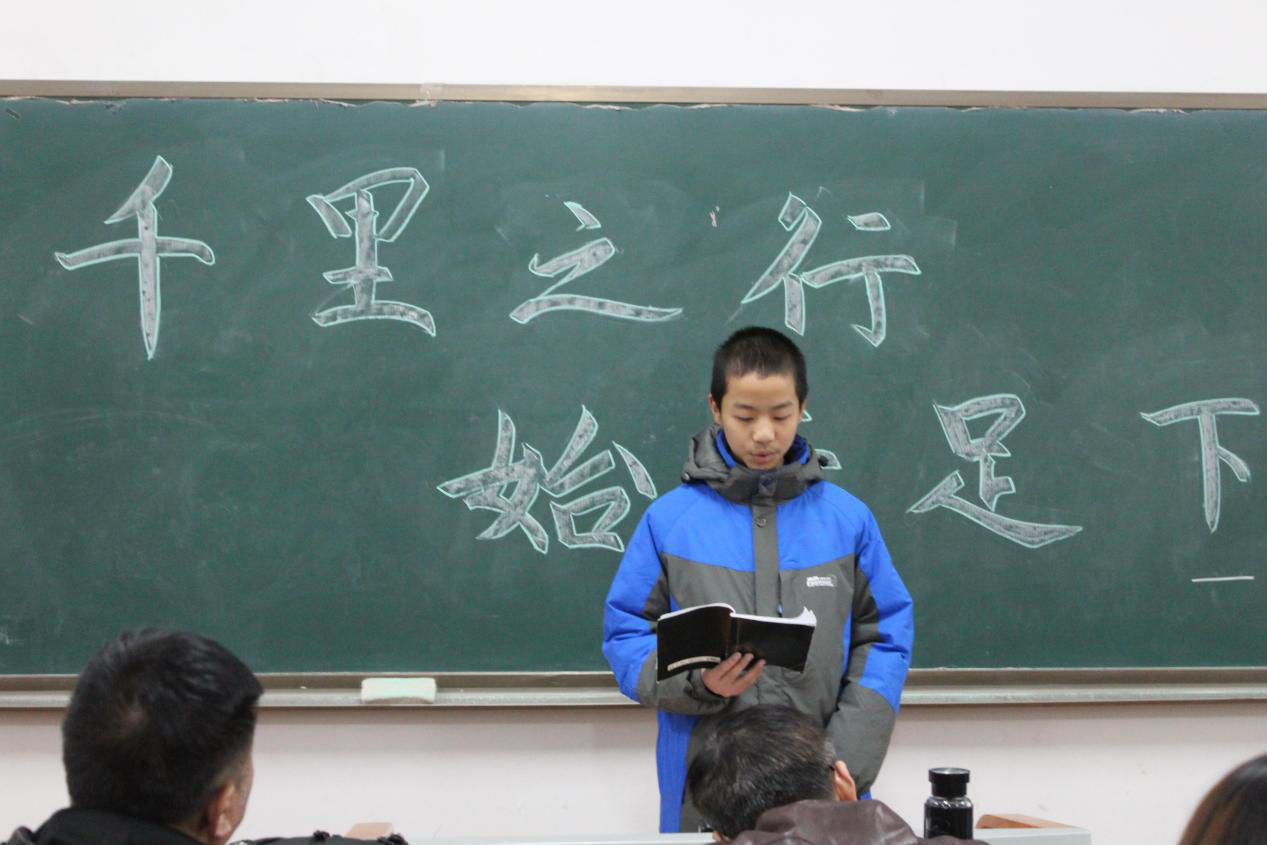 千里之行
始 足下